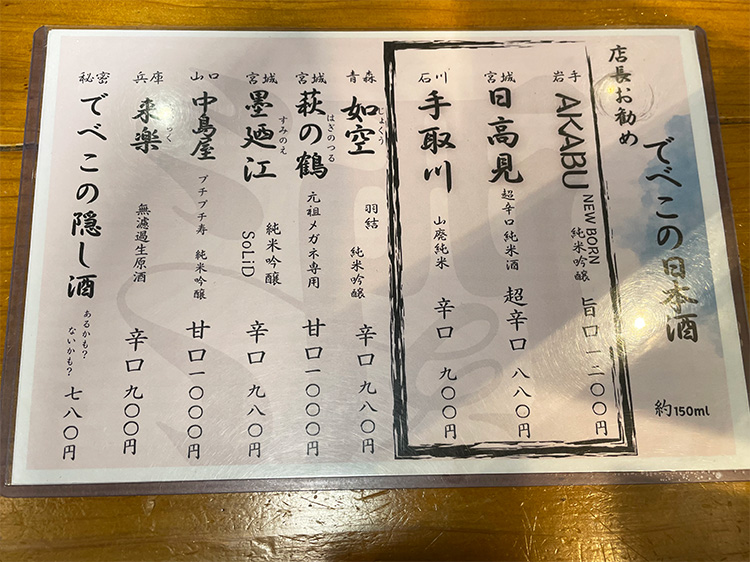 でべこの日本酒
約150ml
店長お勧め
岩手
AKABU
NEW BORN
純米吟醸
旨口 一二〇〇円
宮城
日高見
超辛口純米酒
超辛口 八八〇円
石川
手取川
山廃純米
辛口 九〇〇円
青森
如空
じょくう
羽結
純米吟醸
辛口 九八〇円
宮城
萩の鶴
はぎのつる
元祖メガネ専用
甘口 一〇〇〇円
宮城
墨廼江
すみのえ
純米吟醸
SoLiD
辛口 九八〇円
山口
中島屋
プチプチ寿 純米吟醸
甘口 一〇〇〇円
兵庫
来楽
無濾過生原酒
辛口 九〇〇円
秘密
でべこの隠し酒
あるかも?
ないかも?
七八〇円